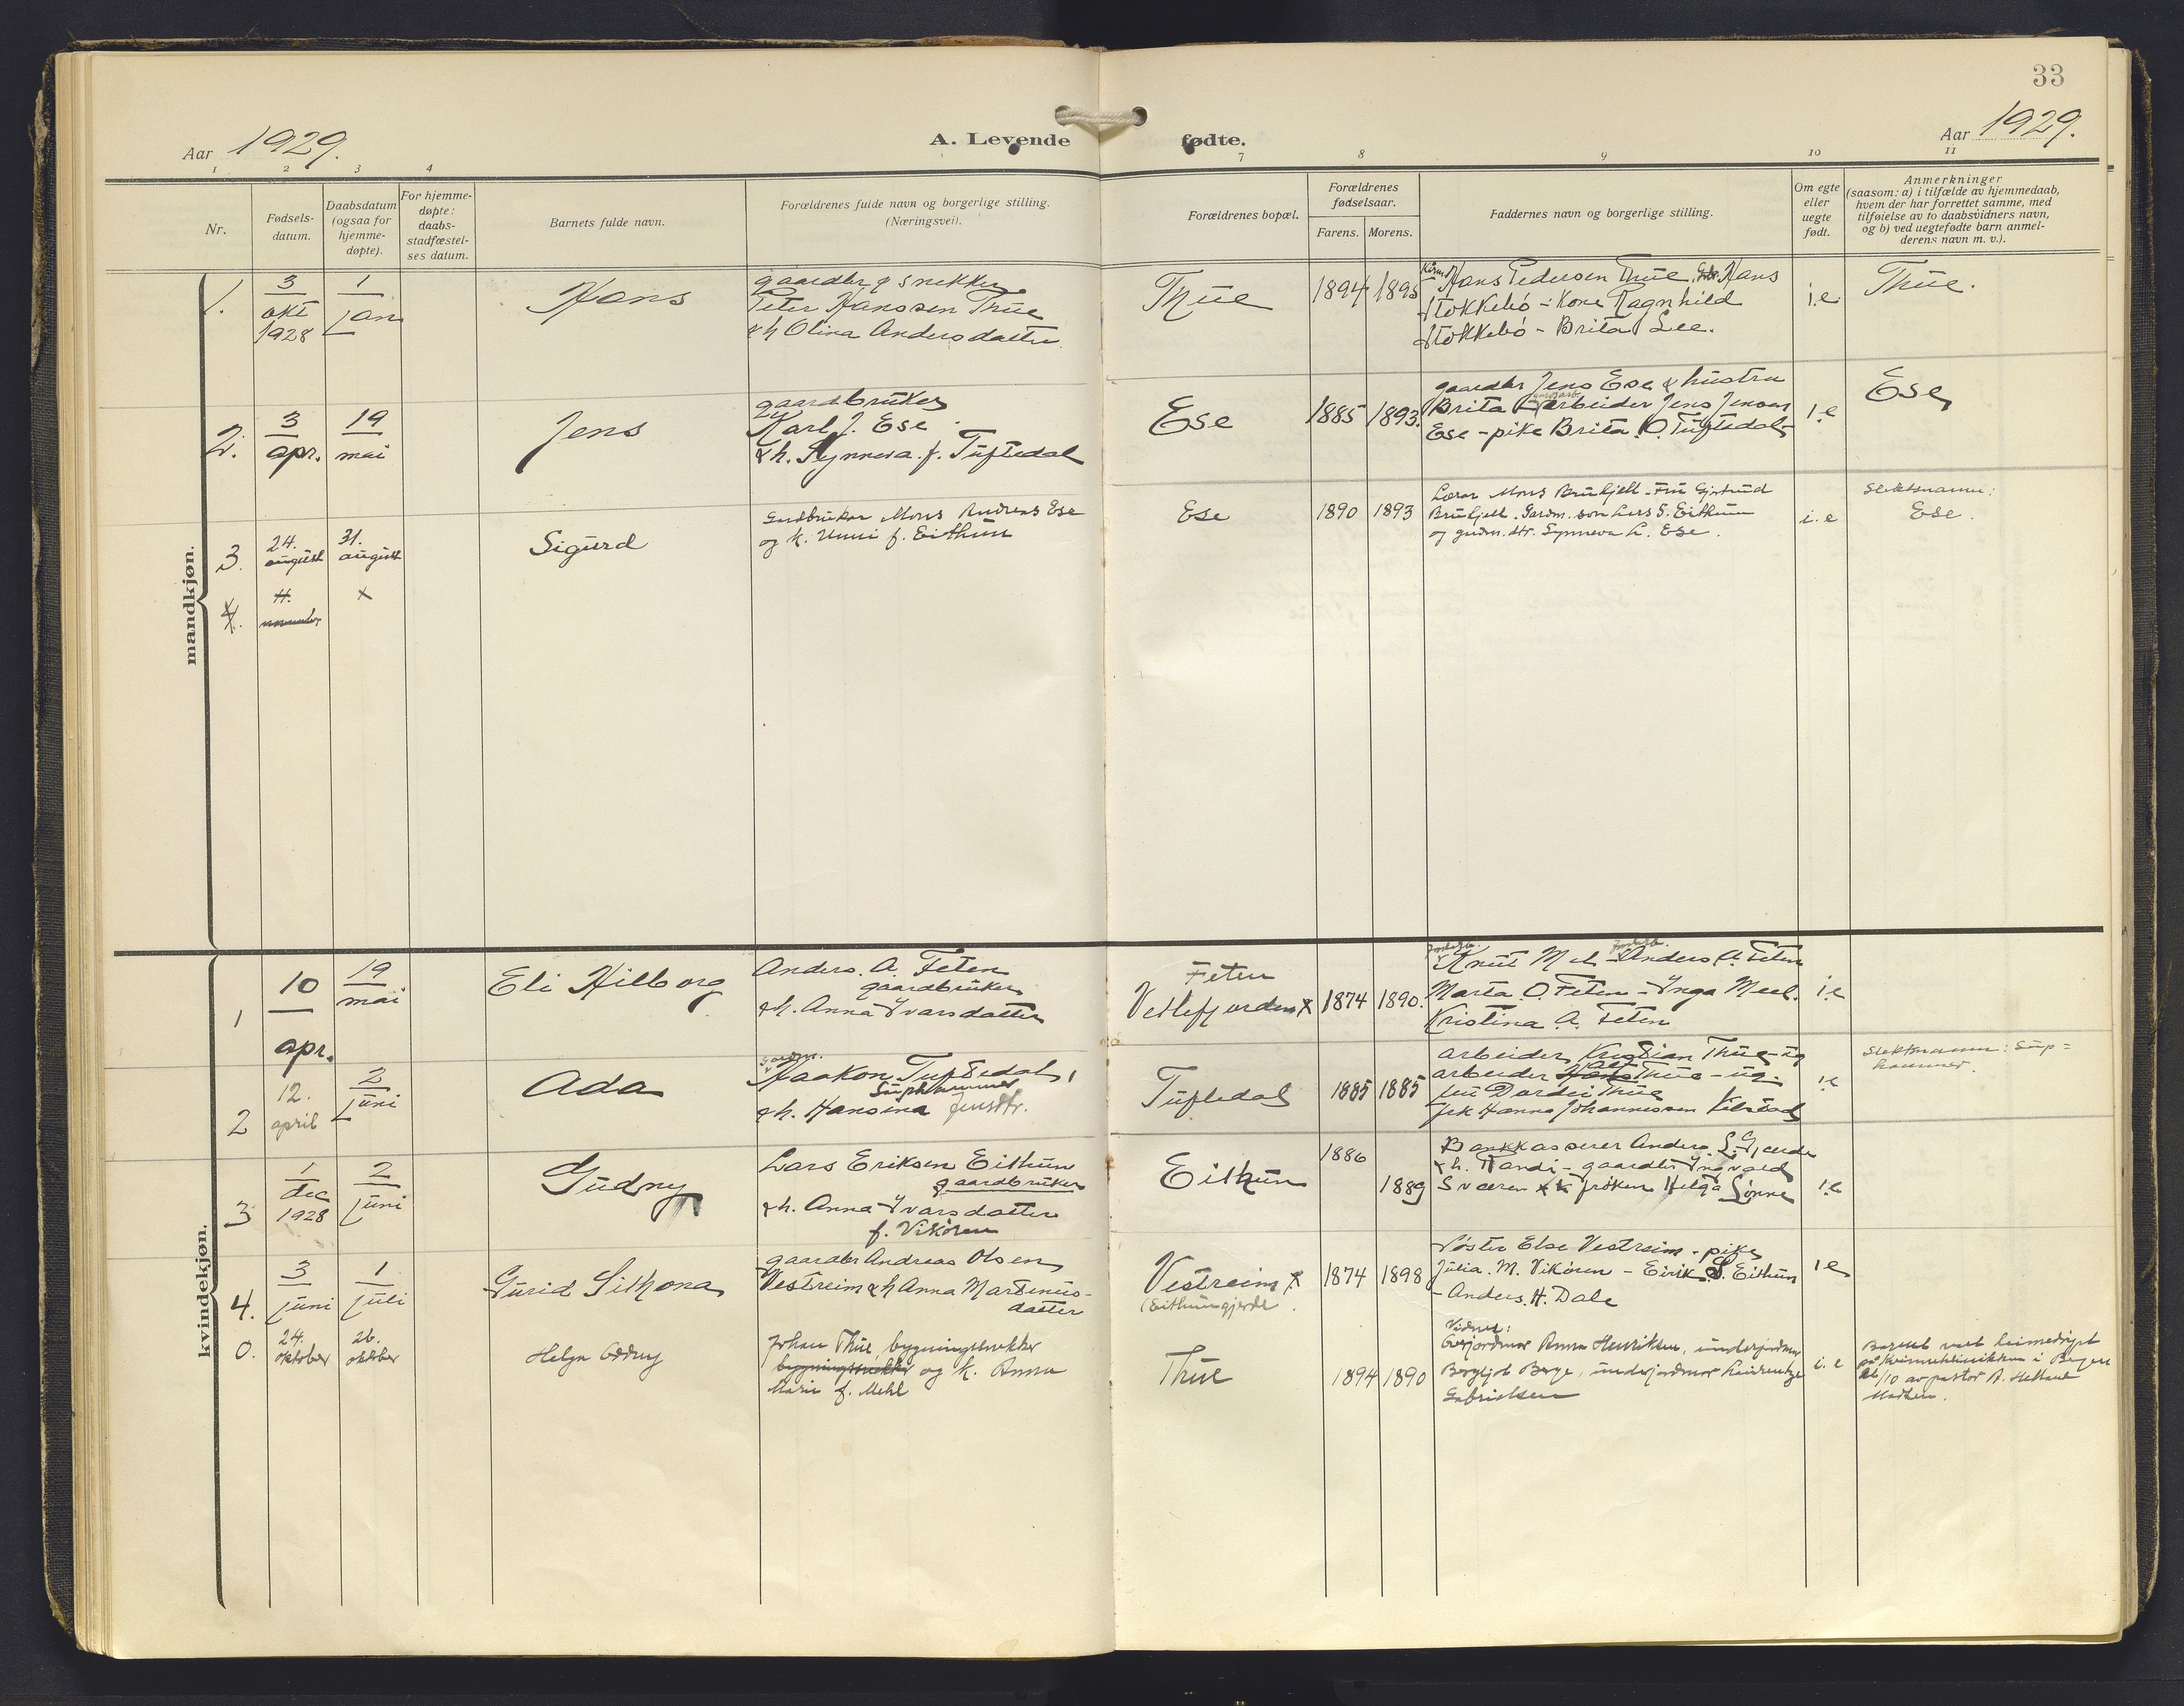 33
Aar 1929.
A. Levende fødte.
Aar 1929.
1 2 3 4 7 8 9 10 11
Nr.
Fødsels-
datum.
Daabsdatum
(ogsaa for
hjemme-
døpte).
For hjemme-
døpte:
daabs-
stadfæstel-
ses datum.
Barnets fulde navn.
Forældrenes fulde navn og borgerlige stilling.
(Næringsvei).
Forældrenes bopæl.
Forældrenes
fødselsaar.
Farens. Morens.
Faddernes navn og borgerlige stilling.
Om egte
eller
uegte
født.
Anmerkninger
(saasom: a) i tilfælde av hjemmedaab,
hvem der har forrettet samme, med
tilføielse av to daabsvidners navn,
og b) ved uegtefødte barn anmel-
derens navn m. v.).
mandkjøn.
1.
3
okt
1928
1
jan
Hans
gaardbr & snekker
Peter Hanssen Thue
& h Olina Andersdatter
Thue
1894 1895
Hans Pedersen Thue, Hans
Stokkebö - Kone Ragnhild
Stokkebö - Brita Lee.
i.e.
Thue.
2.
3
apr.
19
mai
Jens
gaardbruker
Karl J. Ese
& h. Synneva f. Tuftedal
Ese
1885 1893.
gaardbr Jens Ese & hustru
Brita - arbeider Jens Jensen
Ese - pike Brita O. Tuftedal
i.e
Ese
3.
24.
august
31.
august
Sigurd
Gardbrukar Mons Andreas Ese
og k. Unni f. Eithun
Ese
1890 1893
Lærar Mons Brukjell - Fru Gjertrud
Brukjell. Gardm. son Lars S. Eithun
og gardm. dtr. Synneva L. Ese.
i. e
Slektsnamn:
Ese.
4.
november
x
kvindekjøn.
1
10
apr.
19
mai
Eli Hilborg
Anders. A. Feten
gaardbruker
& h. Anna Ivarsdatter
Feten
Vetlefjorden x
1874 1890.
Knut Mel - Anders A. Feten
Marta O. Feten - Ynga Meel.
Kristina A. Feten
i.e
2
12.
april
2
juni
Ada
Gardm.
Haakon Tuftedal,
Suphammer
& h. Hansina Jensdtr.
Tuftedal
1885 1885
arbeider Kristian Thue - ug
arbeider Thue - ug
fru Dordei Thue
frk Hanna Johannessen Kilstad
i.e
Slektsnamn: Sup=
hammer.
3
1
dec
1928
2
juni
Gudny
Lars Eriksen Eithun
gaardbruker
& h. Anna Ivarsdatter
f. Vikören
Eithun
1886
1889
Bankkasserer Anders. L. Gjærde
& h. Randi - gaardbr Ingvard
Sværen & k frøken Helga Sønne
i.e
4.
3
juni
1
juli
Gurid Sikona
gaardbr Andreas Olsen
Vestreim & h Anna Martinus-
datter
Vestreim x
(Eithungjerde).
1874 1898
Söster Else Vestreim - pike
Julia. M. Vikören - Eirik S. Eithun
- Anders. H. Dale
i e
0.
24.
oktober
26.
oktober
Helga Oddny
Johan Thue, bygningssnekker
bygningssnekker og k. Anna
Marie f. Mehl
Thue
1894 1890
Vidner:
Overjordmor Anna Henriksen, underjordmor
Borgljot Berge, underjordmor
Gabrielsen
i. e
Barnet vart heimedøypt
på Kvinneklinikken i Bergen
26/10 av pastor A. Helland
Madsen.